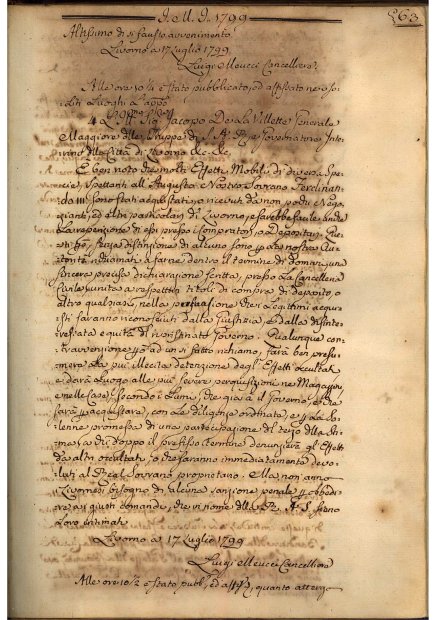 I. M. I. 1799
563
Altissimo di sì fausto avvenimento
Livorno a 17 Luglio 1799
Luigi Meucci Cancelliere
Alle ore 10 1/2 è stato pubblicato, ed affissato nei so-
liti Luoghi L'app.
4 Sig. Jacopo De La Villette Generale
Maggiore delle Truppe di S. A. R. e Governatore Inte-
rino della Città di Livorno &c. &c.
È ben noto che molti Effetti Mobili di diversa Spe-
cie, spettanti all'Augusto Nostro Sovrano Ferdinan-
do III sono stati acquistati, o ricevuti da non pochi Nego-
zianti, ed altri particolari di Livorno, e sarebbe facile
La repenzione di essi presso i Compratori, o Depositari. Que-
sti senza distinzione di alcuno sono nostra Au-
torità richiamati a farne dentro il termine di domani una
sincera precisa dichiarazione scritta, presso La Cancelleria
unita a rispettivi titoli di compra, di deposito, o
altro qualsiasi, nella che i legittimi acqui-
sti saranno riconosciuti dalla Giustizia, e dalla disinte-
ressata equità di Governo. Qualunque con-
travvenzione ad un sì fatto richiamo, farà ben presu-
mere La più illecita detenzione degl'Effetti occultati
e darà Luogo alle più severe perquisizioni ne Magazzini
e nelle Case, secondo i Lumi, che già à il Governo, e che
sarà acquistare, con La diligenza ordinata, e La So-
lenne promessa di una partecipazione del terzo della Sti-
ma, a chi doppo il prefisso termine denunzierà gl'Effetti
da altri occultati, che saranno immediatamente devo-
luti al Real Sovrano proprietario. Ma non anno
i Livornesi bisogno di alcuna sanzione penale obbedi-
re a giusti comandi, che in nome della R. A. S. siano
Loro intimati
Livorno a 17 Luglio 1799
Luigi Meucci Cancelliere
Alle ore 10 1/2 è stato pubb., ed aff., quanto